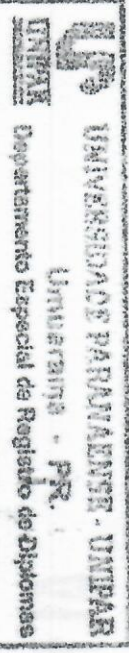 UNIVERSIDADE PARANAENSE - UNIPAR
Umuarama - PR.
UNIPAR
Departamento Especial de Registro de Diplomas